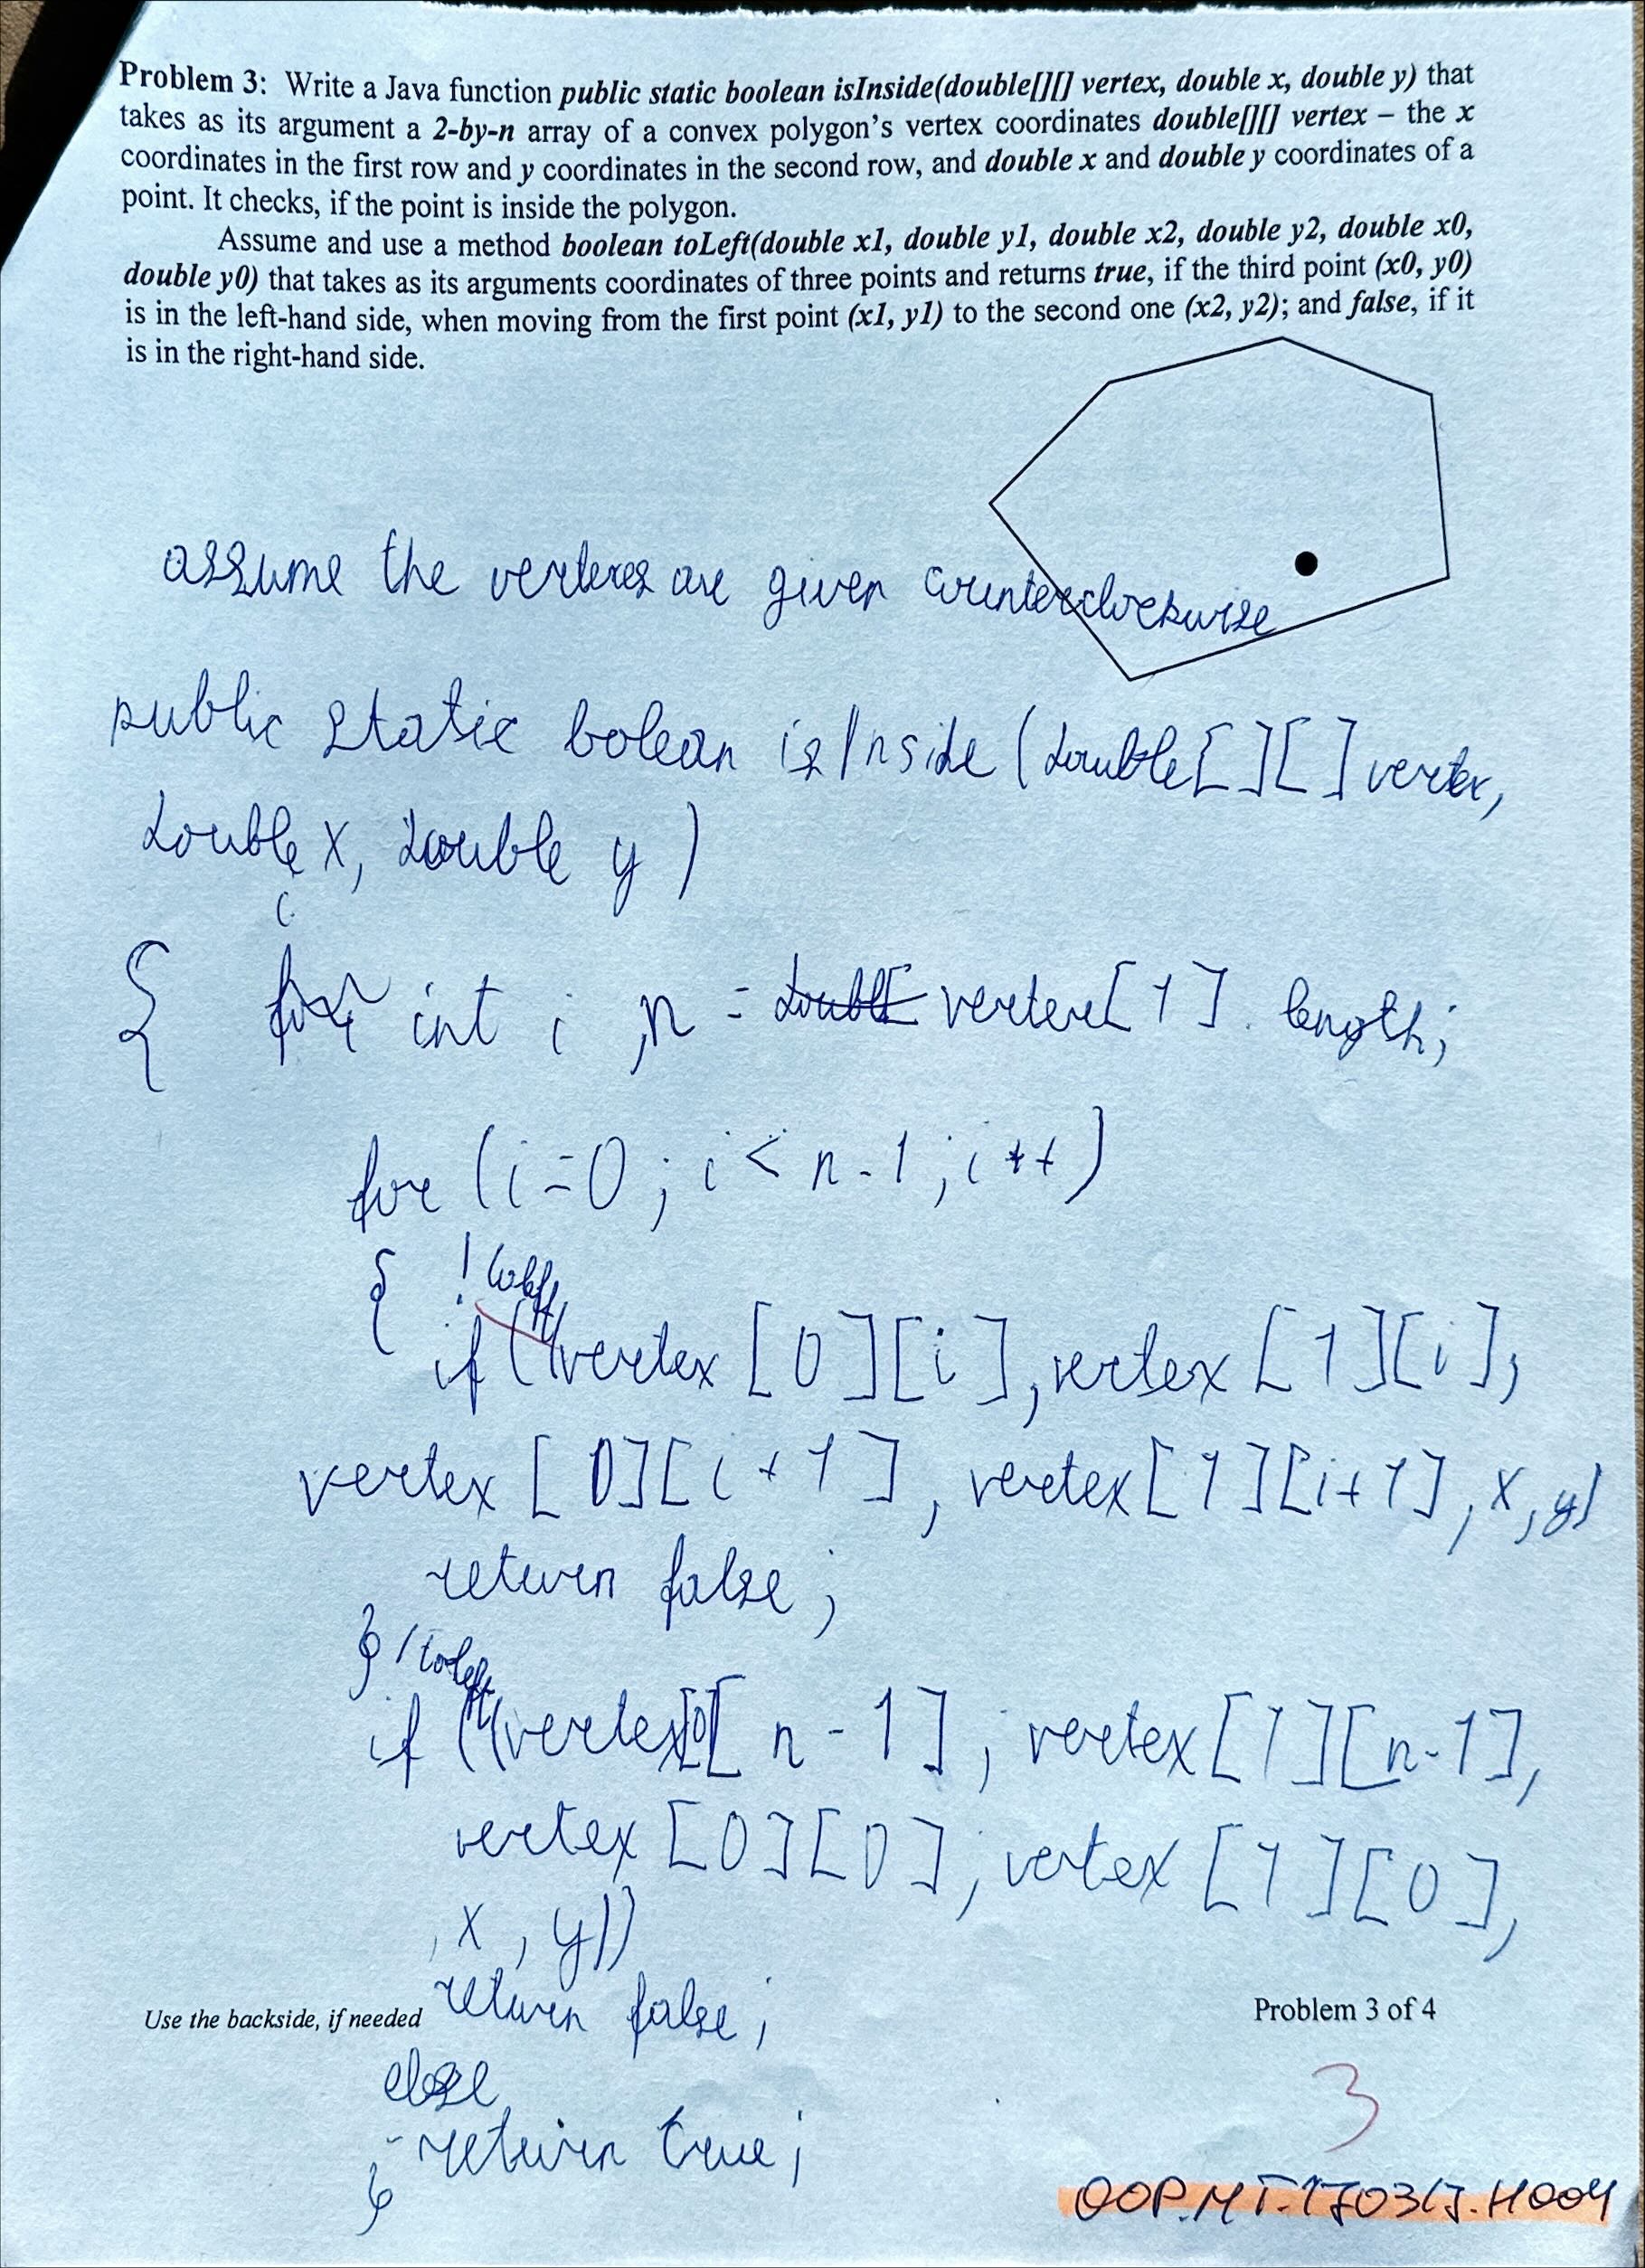 Problem 3: Write a Java function public static boolean isInside(double[][] vertex, double x, double y) that
takes as its argument a 2-by-n array of a convex polygon's vertex coordinates double[][] vertex – the x
coordinates in the first row and y coordinates in the second row, and double x and double y coordinates of a
point. It checks, if the point is inside the polygon.
Assume and use a method boolean toLeft(double x1, double y1, double x2, double y2, double x0,
double y0) that takes as its arguments coordinates of three points and returns true, if the third point (x0, y0)
is in the left-hand side, when moving from the first point (x1, y1) to the second one (x2, y2); and false, if it
is in the right-hand side.
assume the vertexes are given counterclockwise
public static bolean isInside (double[][] vertex,
double x, double y )
{ int i , n = vertex[1]. length;
for (i=0 ; i < n-1 ; i++)
{ ! toLeft
if ( (vertex [0][i], vertex [1][i],
vertex [0][i+1], vertex [1][i+1], x, y)
return false ;
} ! toLeft
if ( (vertex[0][n-1], vertex [1][n-1],
vertex [0][0], vertex [1][0],
, x , y))
return false ;
Use the backside, if needed
Problem 3 of 4
else
return true ;
}
3
OOP.MT.170317.H004